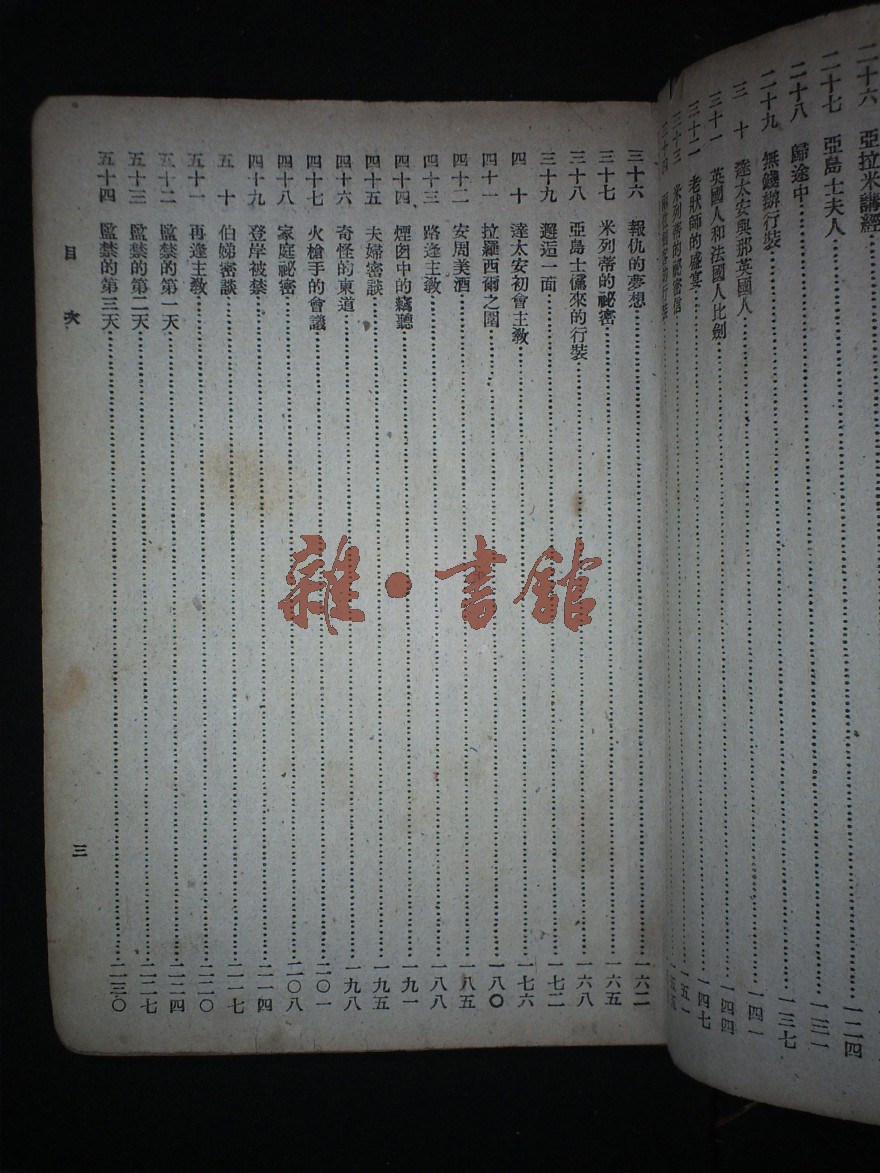 二十六 亞拉米講經 一二四
二十七 亞島士夫人 一三一
二十八 歸途中 一三七
二十九 無錢辦行裝 一四一
三十 達太安與那英國人 一四四
三十一 英國人和法國人比劍 一四七
三十二 老狀師的盛宴 一五一
三十三 米列蒂的祕密信 一五五
三十四
三十六 報仇的夢想 一六二
三十七 米列蒂的祕密 一六五
三十八 亞島士儻來的行裝 一六八
三十九 邂逅一面 一七二
四十 達太安初會主教 一七六
四十一 拉羅西爾之圍 一八〇
四十二 安周美酒 一八五
四十三 路逢主教 一八八
四十四 煙囱中的竊聽 一九一
四十五 夫婦密談 一九五
四十六 奇怪的東道 一九八
四十七 火槍手的會議 二〇一
四十八 家庭祕密 二〇八
四十九 登岸被禁 二一四
五十 伯娣密談 二一七
五十一 再逢主教 二二〇
五十二 監禁的第一天 二二四
五十三 監禁的第二天 二二七
五十四 監禁的第三天 二三〇
目次 三
雜·書館